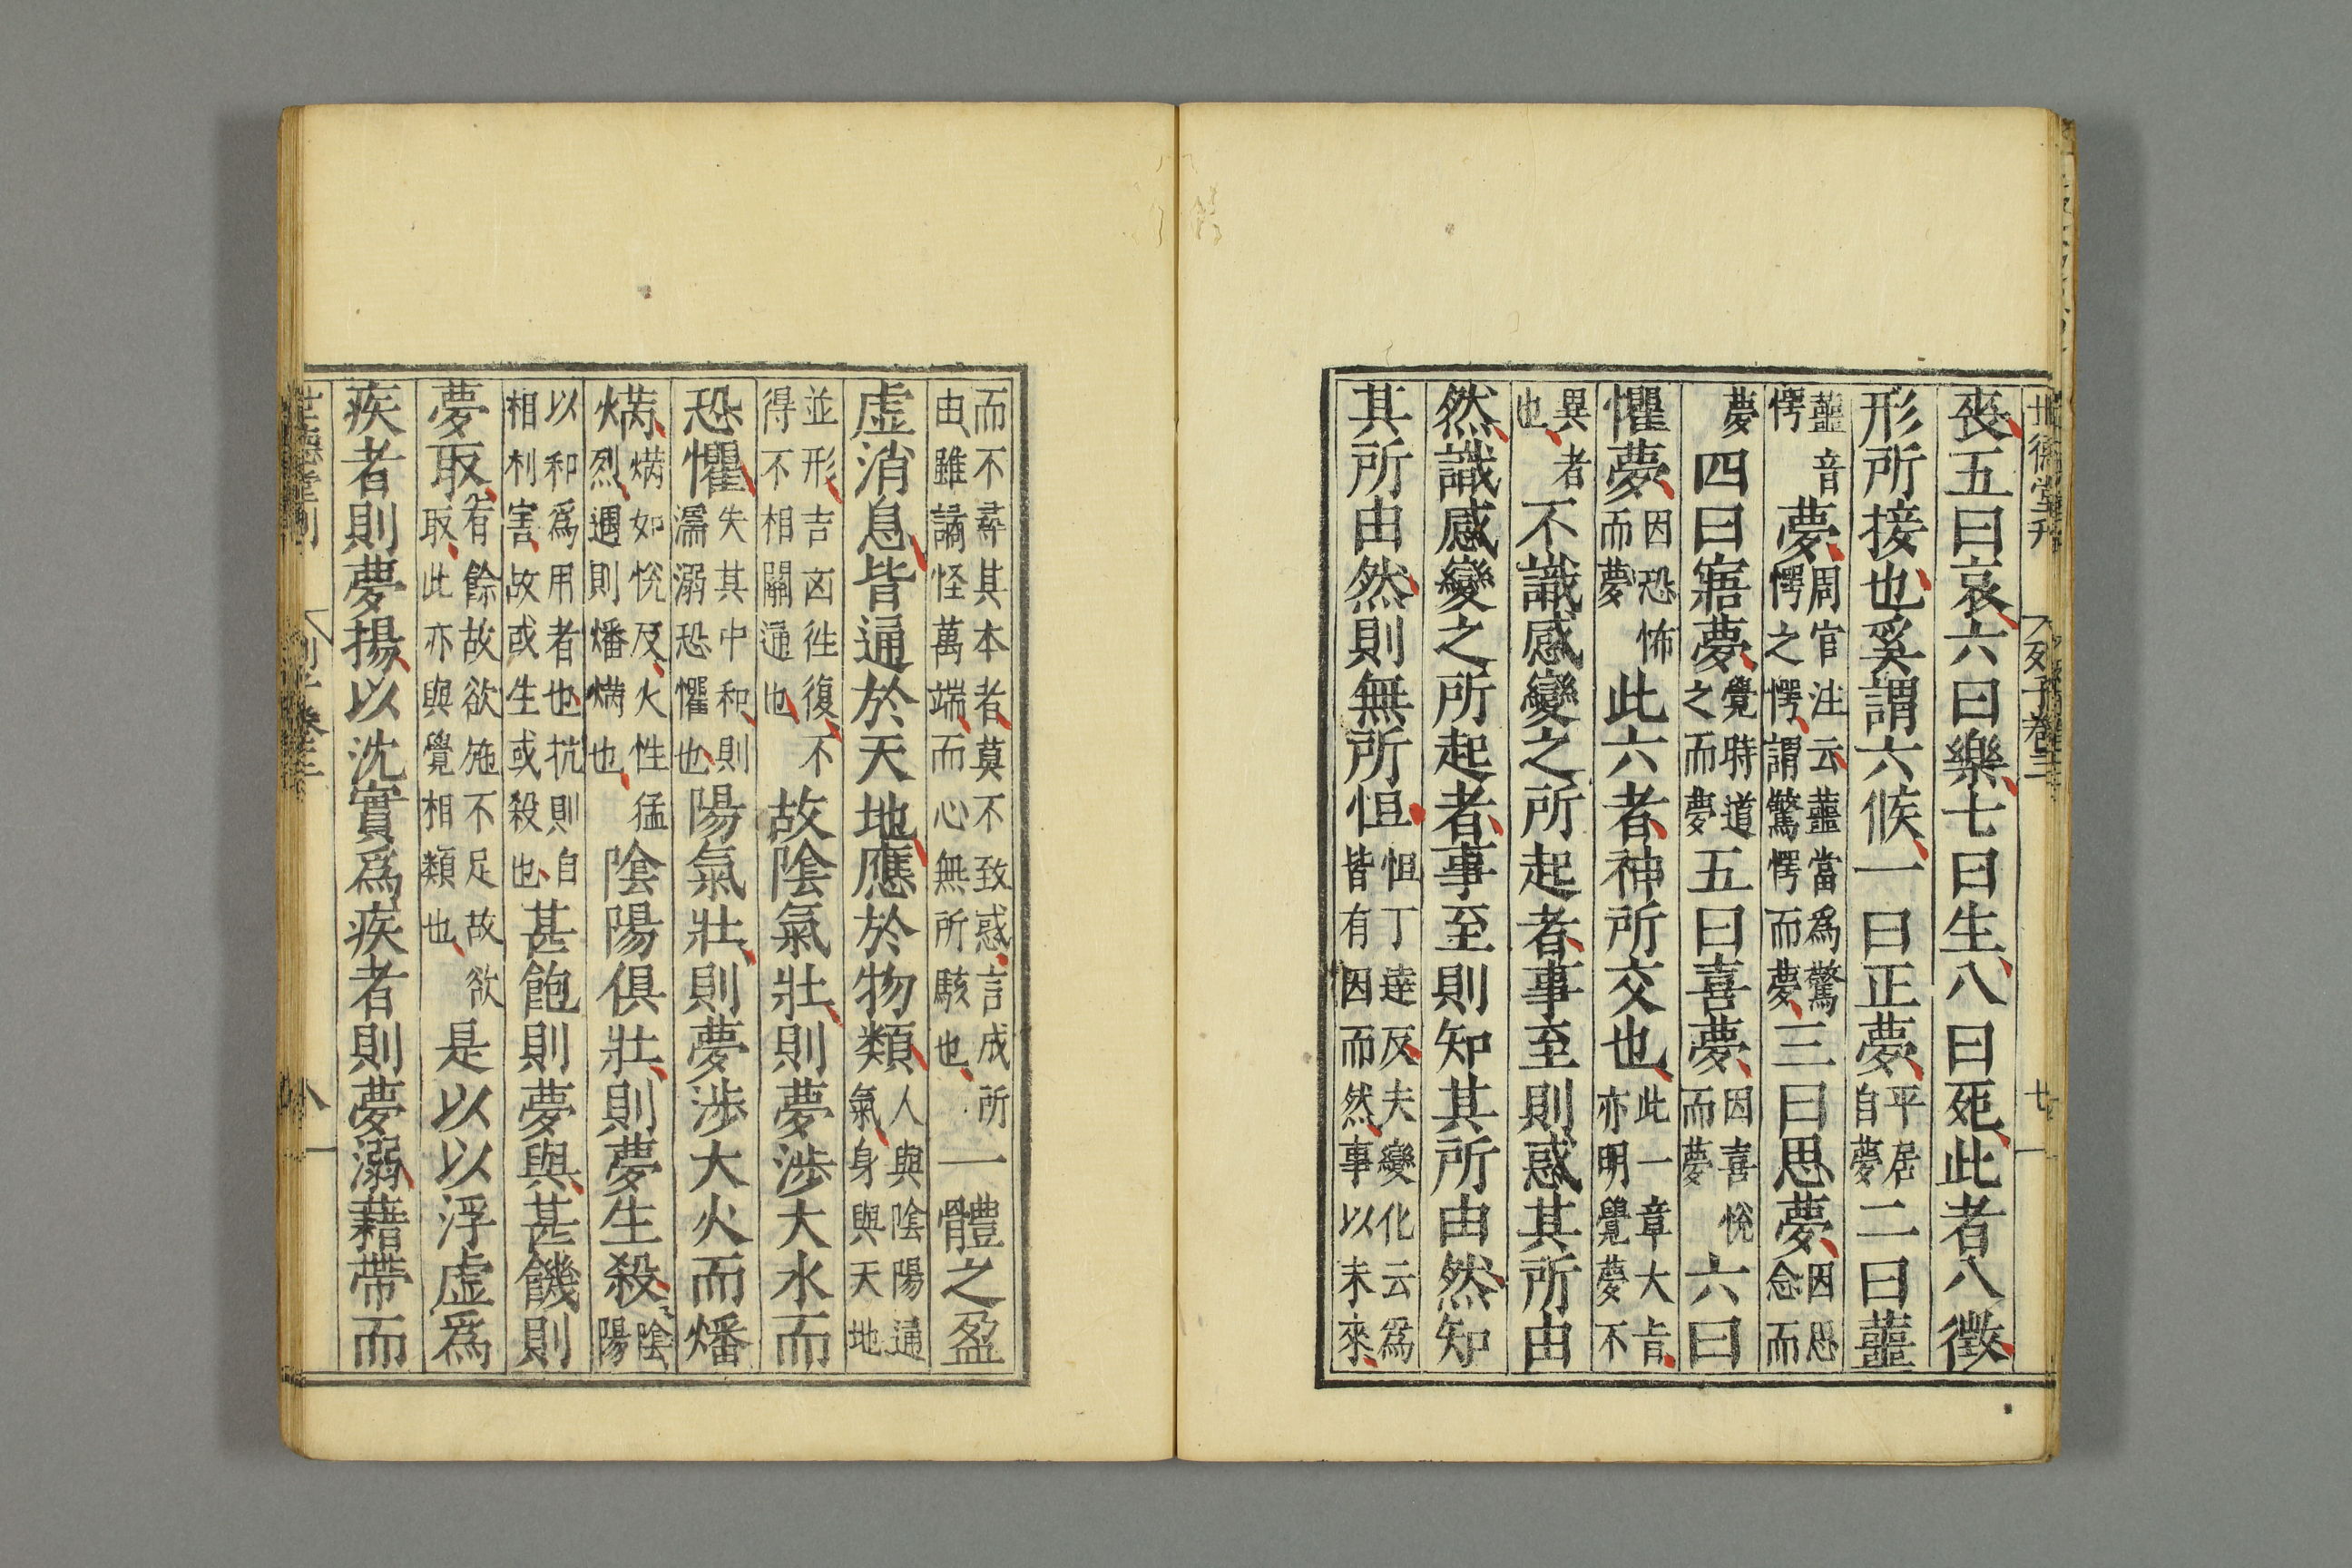 世德堂刊 列子卷三
喪五曰哀六曰樂七曰生八曰死此者八徵
形所接也奚謂六候一曰正夢平居自夢二曰蘁
蘁音愕夢周官注云蘁當爲驚愕之愕謂驚愕而夢三曰思夢因思念而
夢四曰寤夢覺時道之而夢五曰喜夢因喜悅而夢六曰
懼夢因恐怖而夢此六者神所交也此一章大旨亦明覺夢不
異者也不識感變之所起者事至則惑其所由
然識感變之所起者事至則知其所由然知
其所由然則無所怛怛丁達反夫變化云爲皆有因而然事以未來
而不尋其本者莫不致惑言成所由雖譎怪萬端而心無所駭也一體之盈
虛消息皆通於天地應於物類人與陰陽通氣身與天地
並形吉凶往復不得不相關通也故陰氣壯則夢涉大水而
恐懼失其中和則濡溺恐懼也陽氣壯則夢涉大火而燔
焫焫如悅反火性猛火烈遇則燔焫也陰陽俱壯則夢生殺陰陽
以和爲用者也抗則自相利害故或生或殺也甚飽則夢與甚饑則
夢取有餘故欲施不足故欲取此亦與覺相類也是以以浮虛爲
疾者則夢揚以沈實爲疾者則夢溺藉帶而
世德堂刊 列子卷三 八